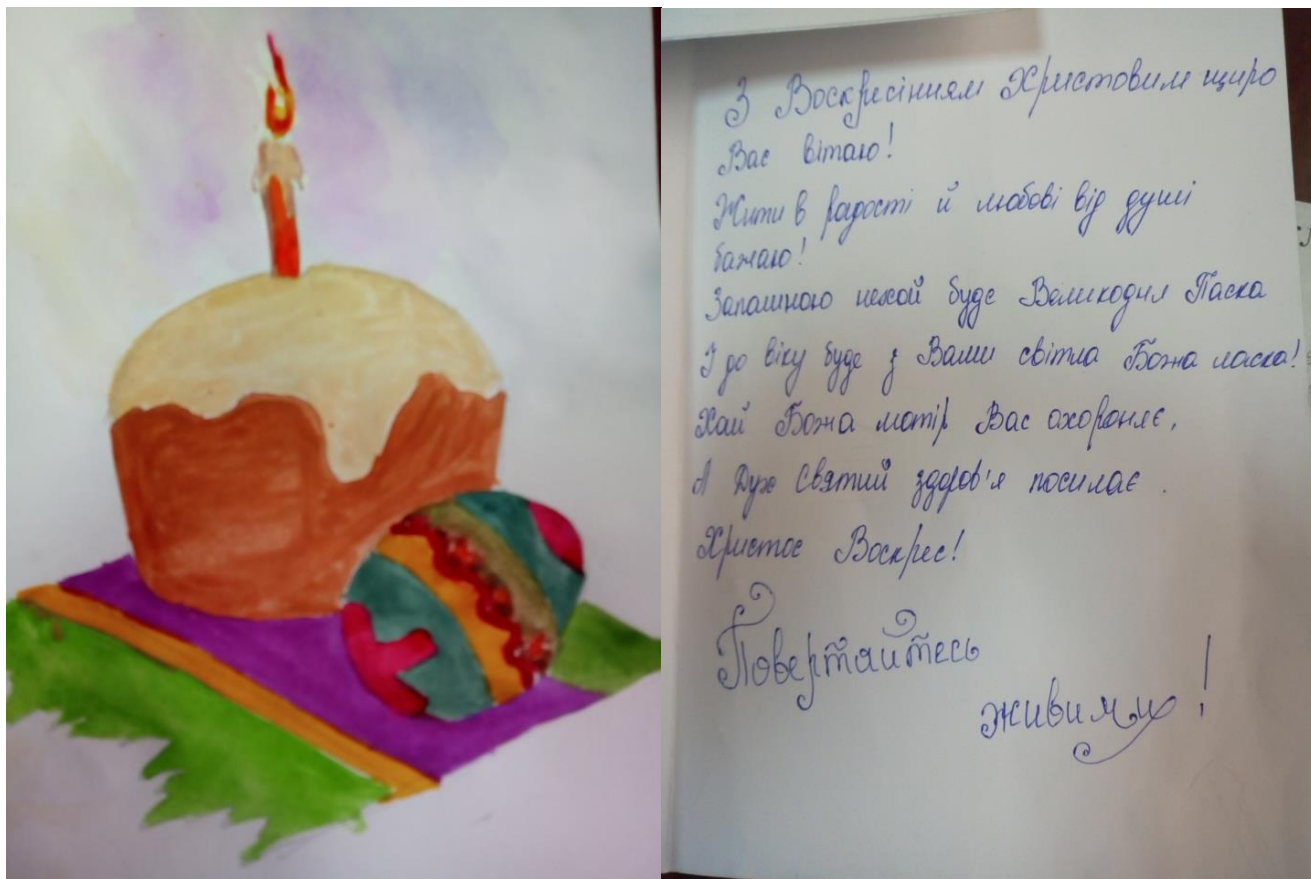 З Воскресінням Христовим щиро
Вас вітаю!
Жити в радості й любові від душі
бажаю!
Запашною нехай буде Великодня Паска
І до віку буде з Вами світла Божа ласка!
Хай Божа матір Вас охороняє,
А Дух Святий здоров'я посилає.
Христос Воскрес!
Повертайтесь
живими!